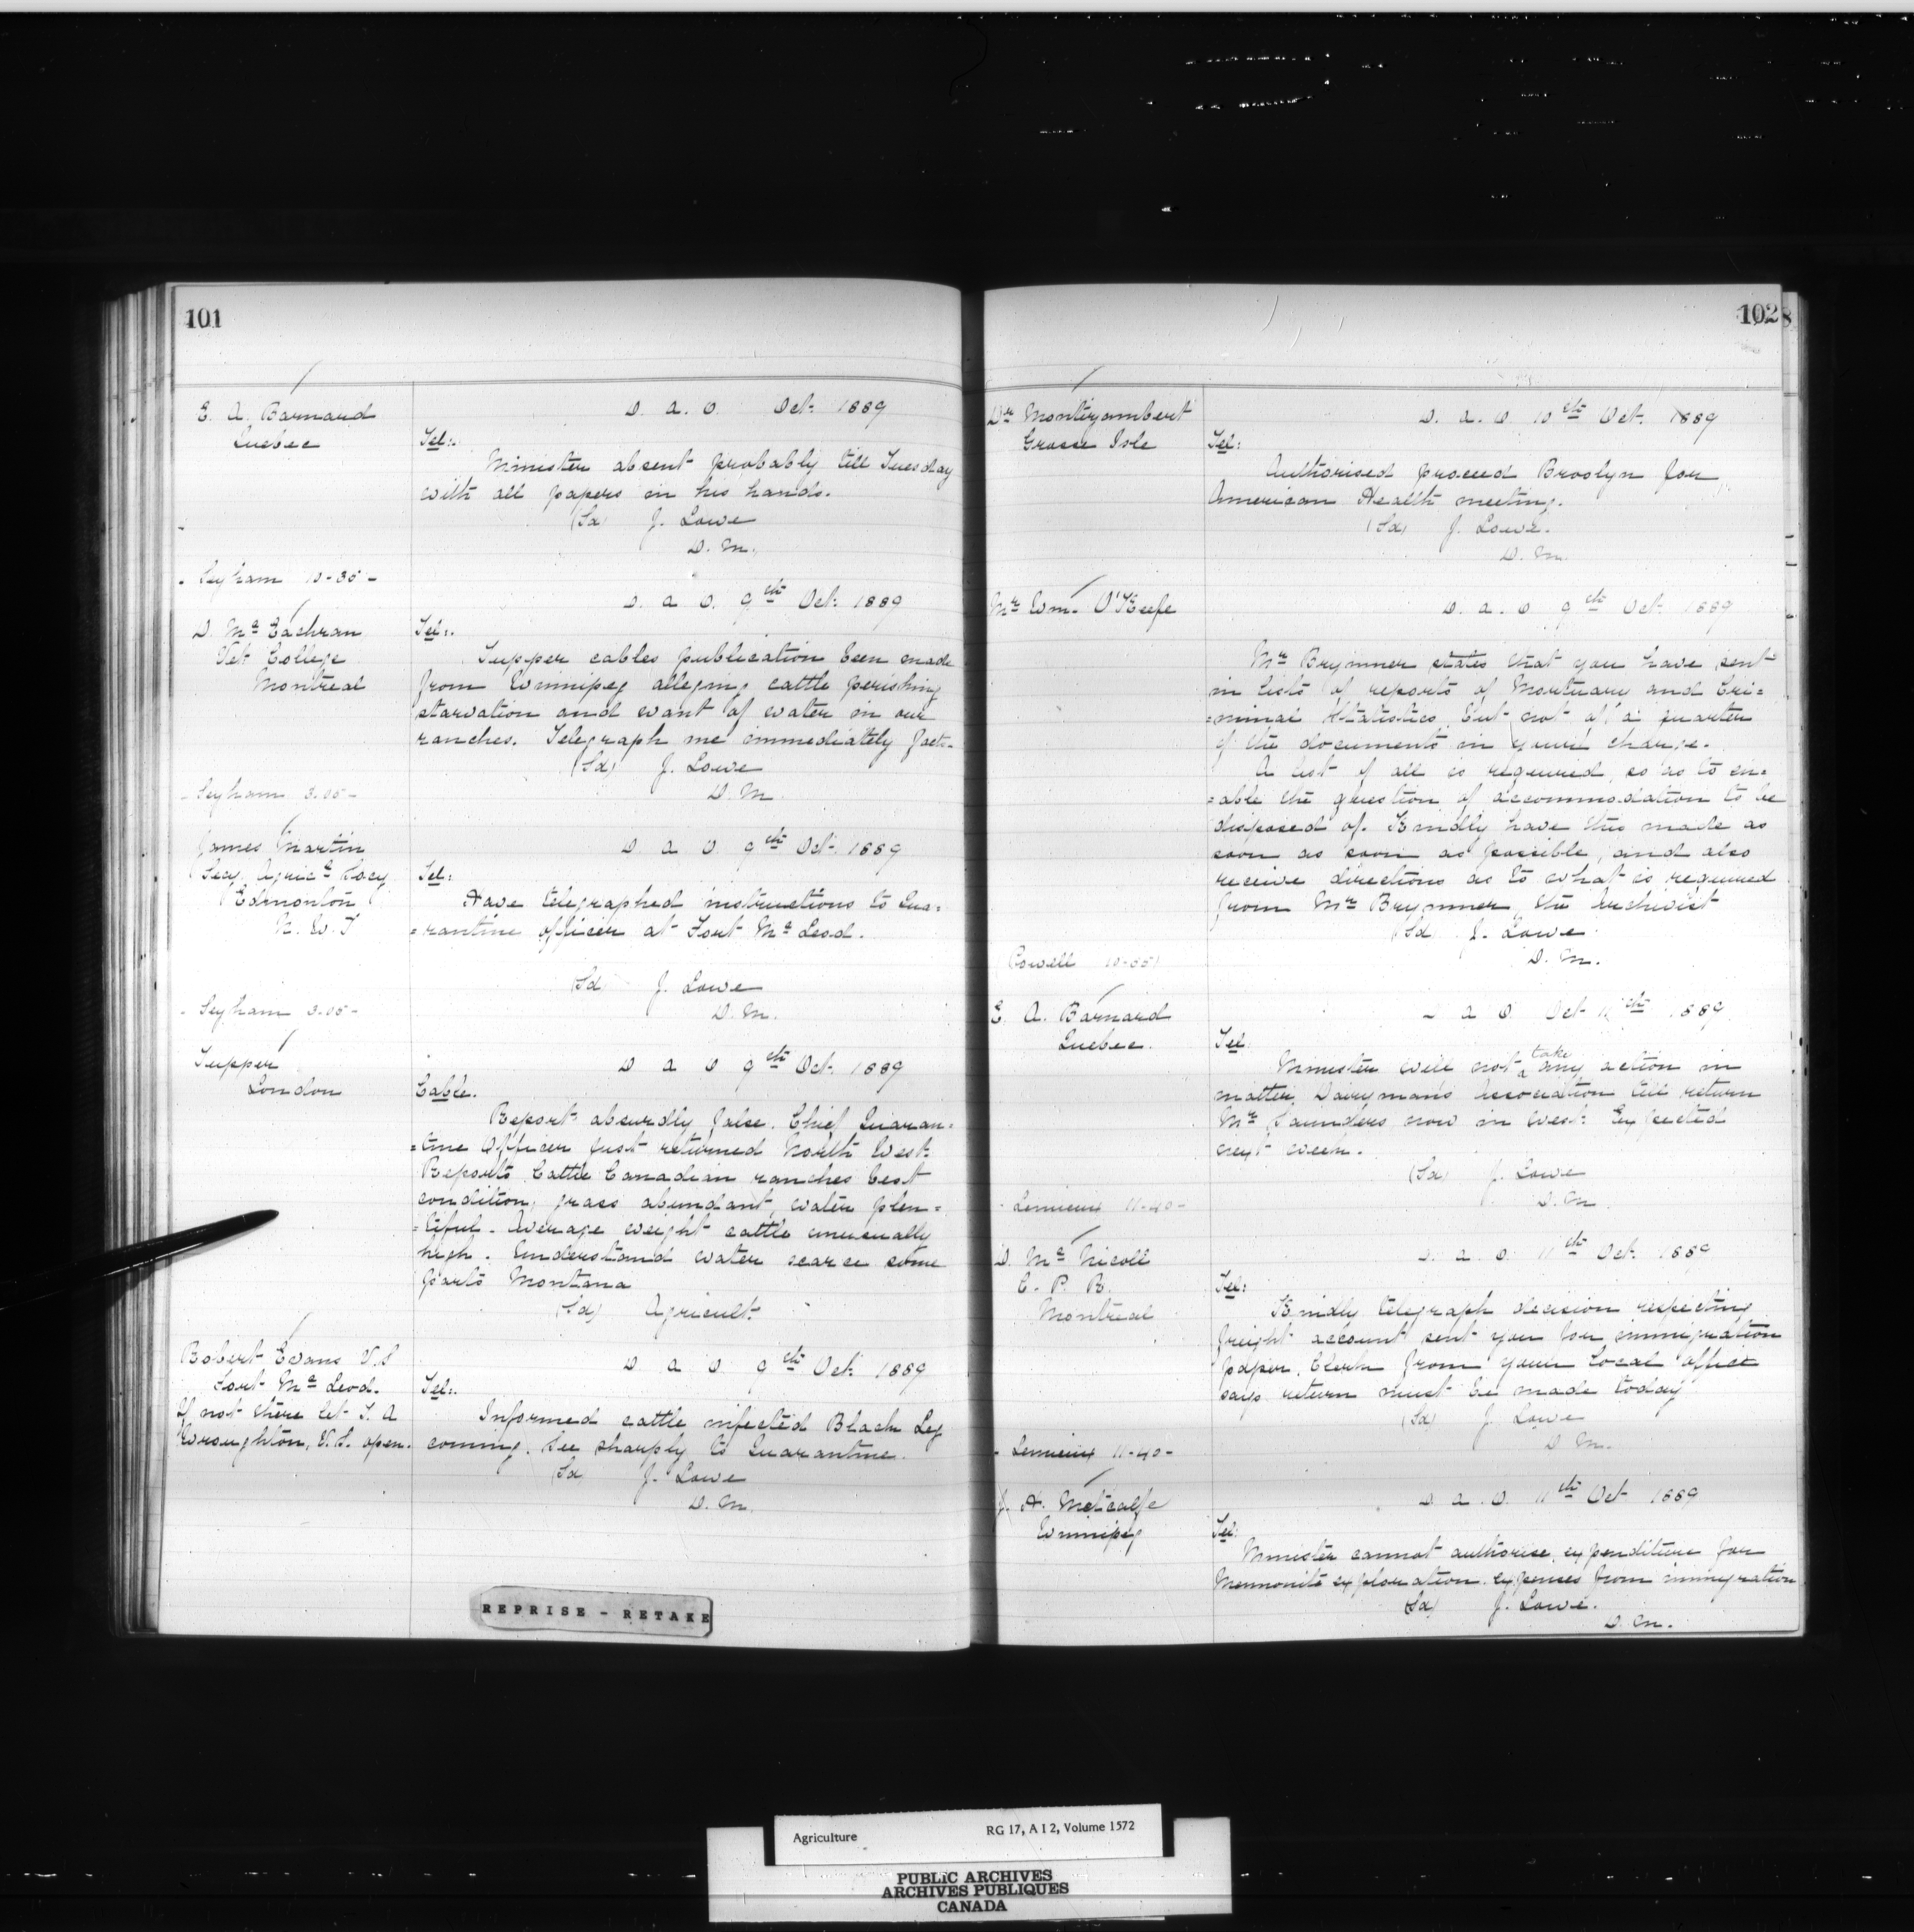 101
E. A. Barnard
Quebec
D. A. O. Oct: 1889
Tel:.
Minister absent probably till Tuesday
with all papers in his hands.
(Sd) J. Lowe
D. M.
D. A. O. 9th Oct: 1889
D. Mc Eachran
Vet: College
Montreal
Tel:.
Tupper cables publication been made
from Winnipeg alleging cattle perishing
starvation and want of water in our
ranches. Telegraph me immediately facts.
(Sd) J. Lowe
D. M.
James Martin
Secy. Agric. Socy
Edmonton
N. W. T
D A O 9th Oct: 1889
Tel:
Have telegraphed instructions to Qua=
=rantine officer at Fort Mc Leod.
(Sd J. Lowe
D. M.
Tupper
London
D A O 9th Oct: 1889
Cable.
Report absurdly false. Chief Quaran=
=tine Officer just returned North West.
Reports Cattle Canadian ranches best
condition, grass abundant, water plen=
=tiful. Average weight cattle unusually
high. Understand water scarce some
parts Montana
(Sd) Agricult:
Robert Evans V.S
Fort Mc Leod.
If not there let T. A
Wroughton, V.S. open.
D A O 9th Oct: 1889
Tel:.
Informed cattle infected Black Leg
coming. See sharply to Quarantine.
(Sd) J. Lowe
D. M.
REPRISE - RETAKE
102
Dr Montizambert
Grosse Isle
D. A. O 10th Oct. 1889
Tel:
Authorised proceed Brooklyn for
American Health meeting.
(Sd) J. Lowe.
D. M.
Mr Wm. O'Keefe
D. A. O 9th Oct: 1889
Mr Brymner states that you have sent
in lists of reports of Mortuary and Cri=
=minal Statistics, but not of a quarter
of the documents in your charge.
A list of all is required, so as to en=
=able the question of accommodation to be
disposed of. Kindly have this made as
soon as soon as possible, and also
receive directions as to what is required
from Mr Brymner, the Archivist
(Sd J. Lowe
D. M.
Powell
E. A. Barnard
Quebec.
D A O Oct 1889
Tel:
Minister will not take any action in
matter Dairyman's Association till return
Mr Saunders now in West. Expected
next week.
(Sd) J. Lowe
D. M.
Lemieux 11-40-
D. Mc Nicoll
C. P. R.
Montreal
D. A. O. 11th Oct. 1889
Tel:
Kindly telegraph decision respecting
freight account sent you for immigration
paper. Clerk from your local office
says return must be made today
(Sd) J. Lowe
D. M.
- Lemieux 11-40-
J. A. Metcalfe
Winnipeg
D. A. O. 11th Oct 1889
Tel:
Minister cannot authorise expenditure for
Mennonite exploration expenses from immigration
(Sd) J. Lowe.
D. M.
Agriculture RG 17, A I 2, Volume 1572
PUBLIC ARCHIVES
ARCHIVES PUBLIQUES
CANADA